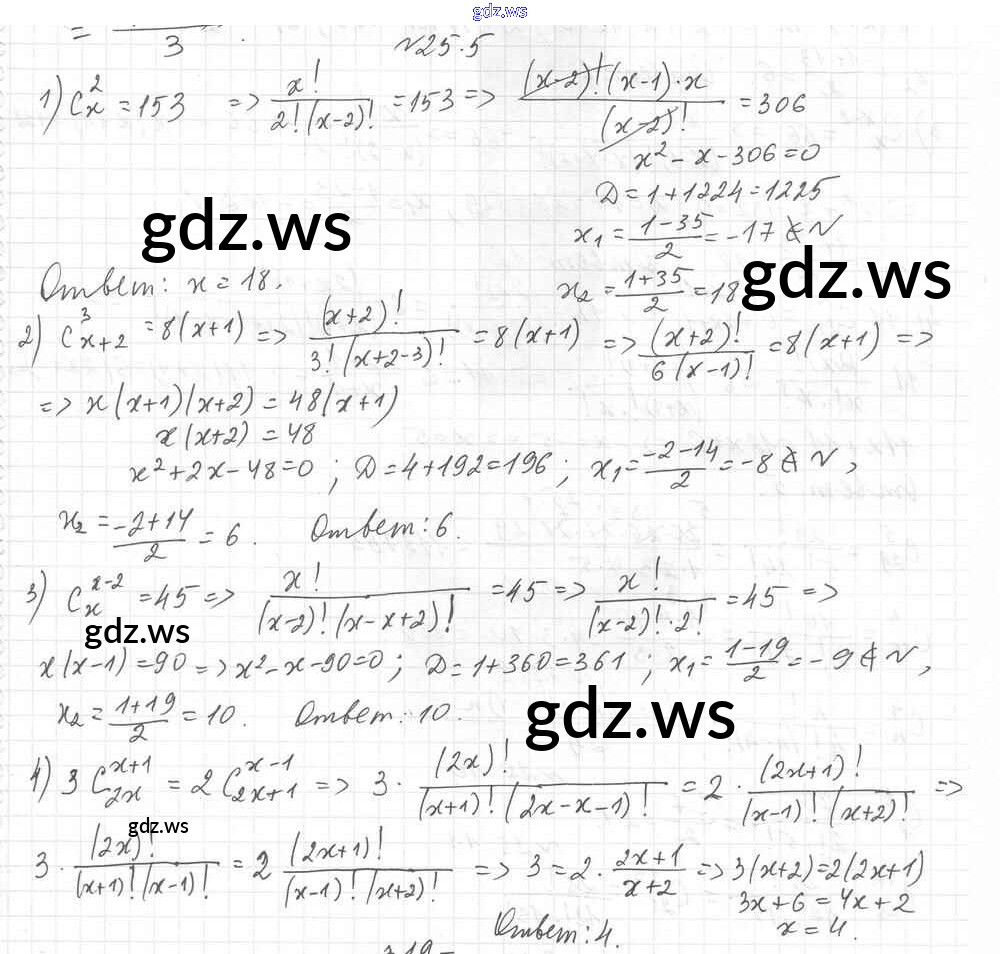 gdz.ws
= —— 3 .
№25.5
1) C_x^2 = 153 => x! / (2!(x-2)!) = 153 => ((x-2)!(x-1)·x) / (x-2)! = 306
x² - x - 306 = 0
Д = 1 + 1224 = 1225
gdz.ws
x₁ = (1-35)/2 = -17 ∉ N
gdz.ws
Ответ: x = 18.
x₂ = (1+35)/2 = 18
2) C_{x+2}^3 = 8(x+1) => (x+2)! / (3!(x+2-3)!) = 8(x+1) => (x+2)! / (6(x-1)!) = 8(x+1) =>
=> x(x+1)(x+2) = 48(x+1)
x(x+2) = 48
x² + 2x - 48 = 0 ; Д = 4 + 192 = 196 ; x₁ = (-2-14)/2 = -8 ∉ N ,
x₂ = (-2+14)/2 = 6 . Ответ: 6.
3) C_x^{x-2} = 45 => x! / ((x-2)!(x-x+2)!) = 45 => x! / ((x-2)!·2!) = 45 =>
gdz.ws
x(x-1) = 90 => x² - x - 90 = 0 ; Д = 1 + 360 = 361 ; x₁ = (1-19)/2 = -9 ∉ N ,
x₂ = (1+19)/2 = 10. Ответ: 10.
gdz.ws
4) 3 C_{2x}^{x+1} = 2 C_{2x+1}^{x-1} => 3 · (2x)! / ((x+1)!(2x-x-1)!) = 2 · (2x+1)! / ((x-1)!(x+2)!) =>
gdz.ws
3 · (2x)! / ((x+1)!(x-1)!) = 2 (2x+1)! / ((x-1)!(x+2)!) => 3 = 2 · (2x+1)/(x+2) => 3(x+2) = 2(2x+1)
3x + 6 = 4x + 2
Ответ: 4. x = 4.